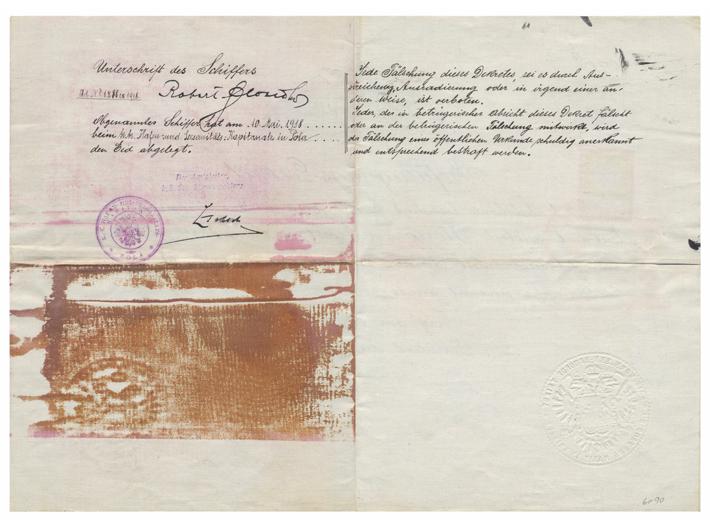 Unterschrift des Schiffers
Robert
Obgenannter Schiffer hat am 10. Mai. 1918
beim k.k. Hafen und Seesanitäts-Kapitanate in Pola
den Eid abgelegt.
Jede Fälschung dieses Dekretes, sei es durch Aus-
streichung, Ausradierung oder in irgend einer an-
deren Weise, ist verboten.
Jeder, der in betrügerischer Absicht dieses Dekret fälscht
oder an der betrügerischen Fälschung mitwirkt, wird
der Fälschung einer öffentlichen Urkunde schuldig anerkannt
und entsprechend bestraft werden.